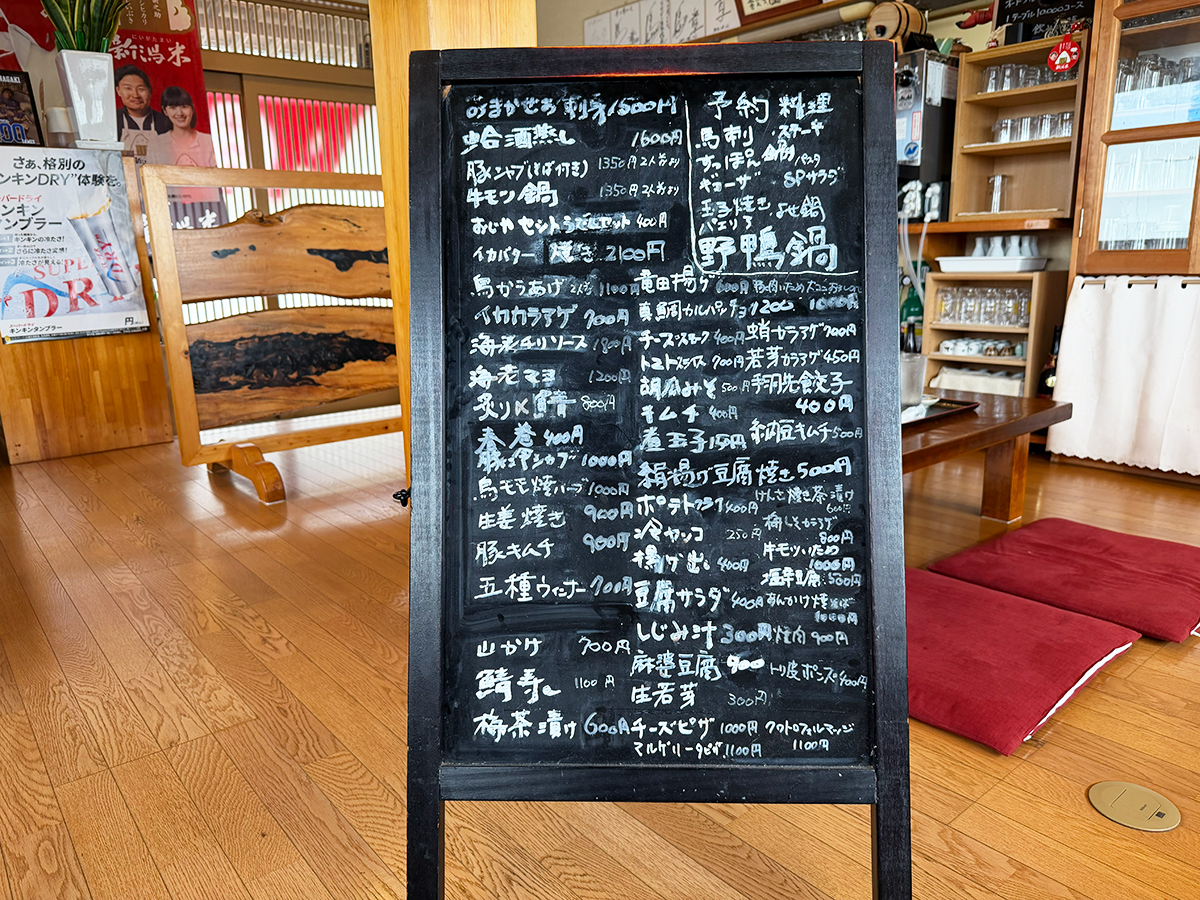 おまかせ刺身1500円
蛤酒蒸し 1600円
豚シャブ(そば付き) 1350円 2人前より
牛モツ鍋 1350円 2人前より
おじやセット うどんセット 400円
イカバター 焼き 2100円
鳥からあげ 2人前 1100円
イカカラアゲ 700円
海老チリソース 1800円
海老マヨ 1200円
炙り〆鯖 800円
春巻 400円
豚シャブ 1000円
鳥モモ焼ハーブ 1000円
生姜焼き 900円
豚キムチ 900円
五種ウィンナー 700円
山かけ 700円
鯖寿し 1100円
梅茶漬け 600円
予約料理
馬刺 ステーキ
すっぽん鍋 パスタ
ギョーザ SPサラダ
玉子焼き よせ鍋
パエリア
野鴨鍋
竜田揚げ
真鯛カルパッチョ 1200 1000円
チーズスモーク 400円 蛸カラアゲ 700円
トマトスライス 700円 若芽カラアゲ 450円
胡瓜みそ 500円 手羽先餃子
キムチ 400円 400円
煮玉子 150円 納豆キムチ 500円
絹揚げ豆腐焼き 500円
ポテトフライ 400円 けんさ焼き茶漬け
600円
冷ヤッコ 250円 梅しそカラアゲ
800円
揚げ出し 400円 牛モツいため
1000円
塩辛豆腐 500円
豆腐サラダ 400円 あんかけ焼そば
しじみ汁 300円 焼肉 900円
麻婆豆腐 900 トリ皮ポンズ 400円
生若芽 300円
チーズピザ 1000円 クワトロフォルマッジ
マルゲリータピザ 1100円 1100円
新潟米
にいがたまい
さぁ、格別の
キンキンDRY"体験を。
パードライ
キンキン
タンブラー
SUPE
DRY
スーパードライ
キンキンタンブラー
円
1テーブル10,000コース